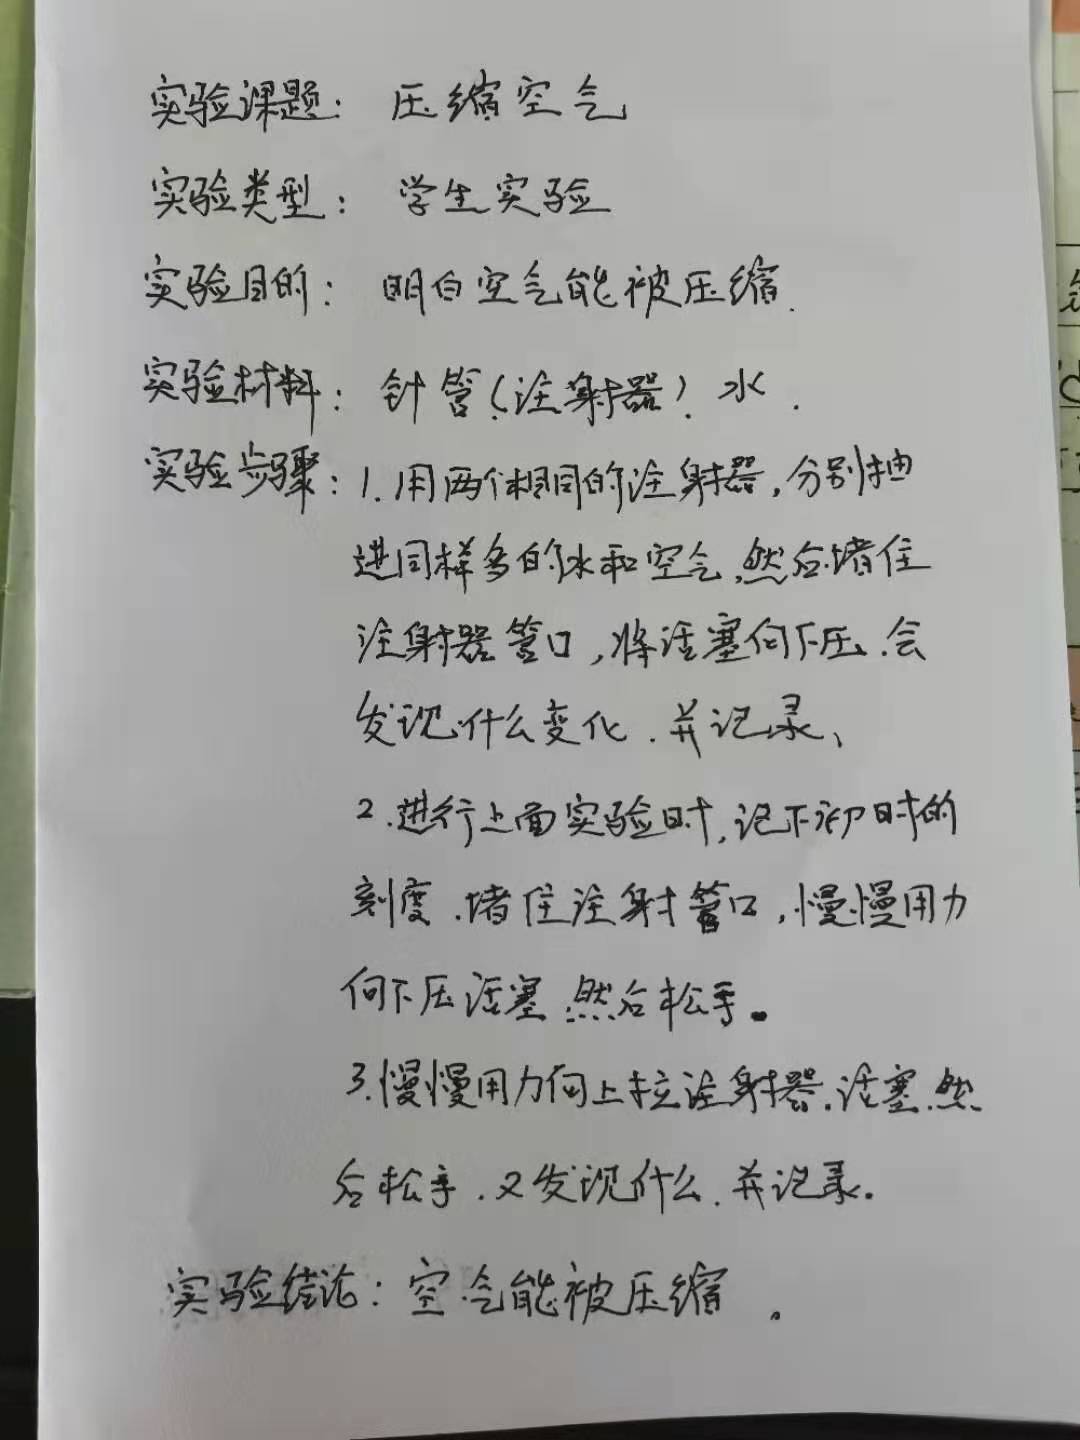 实验课题: 压缩空气
实验类型: 学生实验
实验目的: 明白空气能被压缩.
实验材料: 针管(注射器). 水.
实验步骤: 1.用两个相同的注射器,分别抽
进同样多的水和空气,然后堵住
注射器管口,将活塞向下压.会
发现什么变化.并记录、
2.进行上面实验时,记下初时的
刻度.堵住注射管口,慢慢用力
向下压活塞.然后松手。
3.慢慢用力向上拉注射器.活塞.然
后松手.又发现什么.并记录.
实验结论: 空气能被压缩.